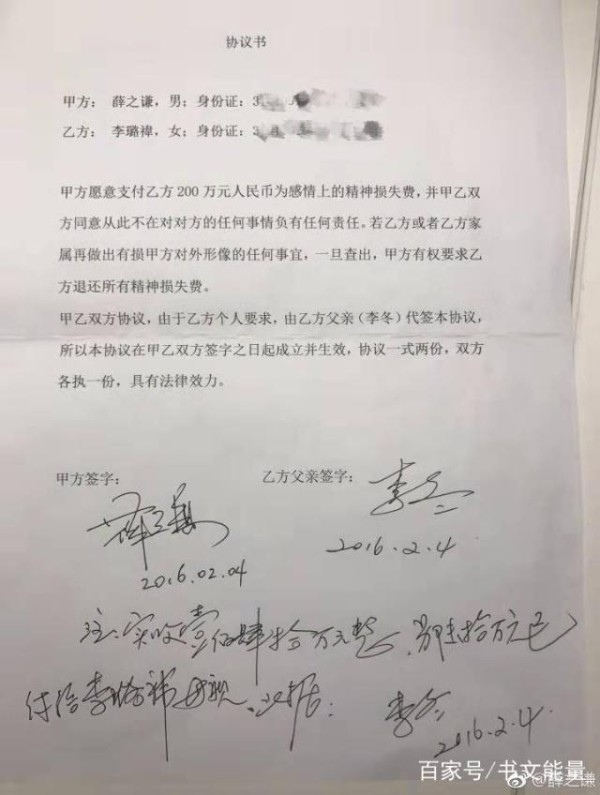 协议书
甲方： 薛之谦，男；身份证：3
乙方： 李璐禕，女；身份证：2
甲方愿意支付乙方 200 万元人民币为感情上的精神损失费，并甲乙双
方同意从此不在对对方的任何事情负有任何责任。若乙方或者乙方家
属再做出有损甲方对外形像的任何事宜，一旦查出，甲方有权要求乙
方退还所有精神损失费。
甲乙双方协议，由于乙方个人要求，由乙方父亲（李冬）代签本协议，
所以本协议在甲乙双方签字之日起成立并生效，协议一式两份，双方
各执一份，具有法律效力。
甲方签字： 乙方父亲签字：
薛之谦 李冬
2016.02.04 2016.2.4
注：实收壹佰肆拾万元整，陆拾万元已
付给李璐禕母亲。
李冬
2016.2.4
百家号/书文能量
@薛之谦